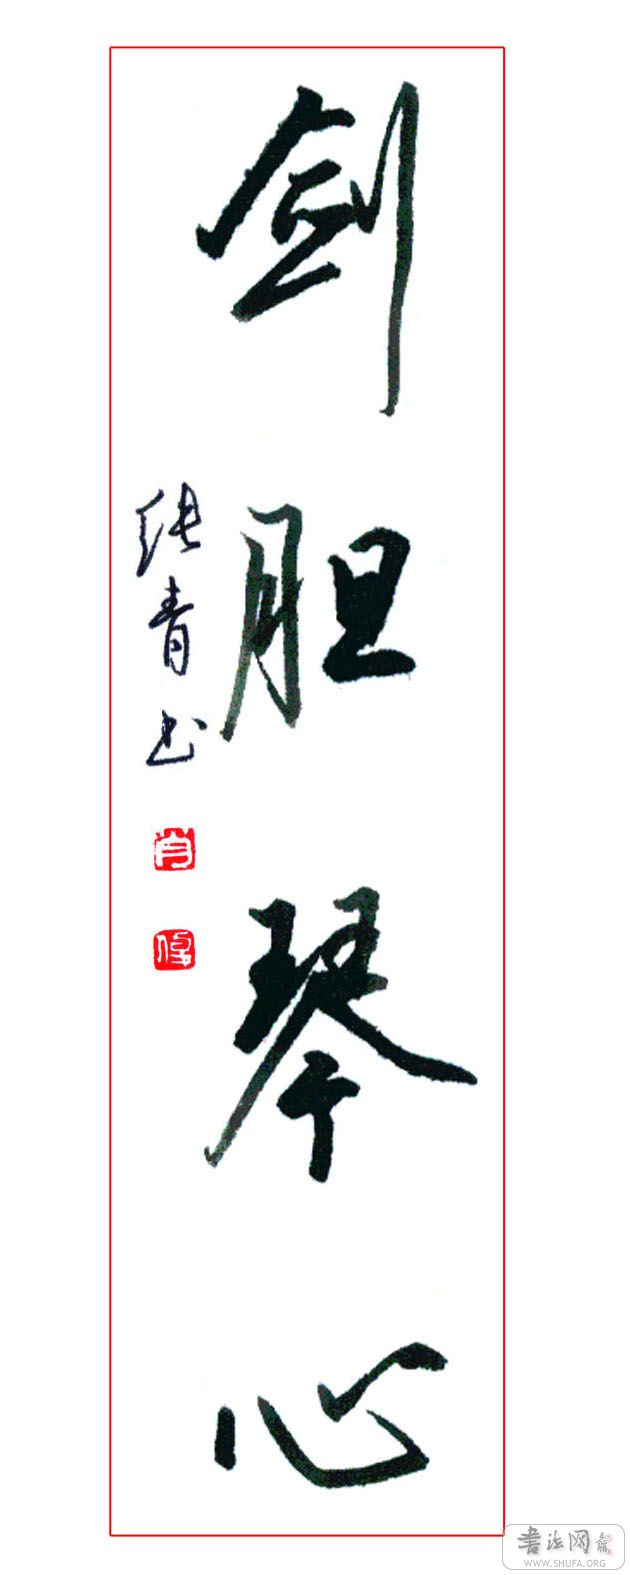 剑胆琴心
张青书
书法网
WWW.SHUFA.ORG